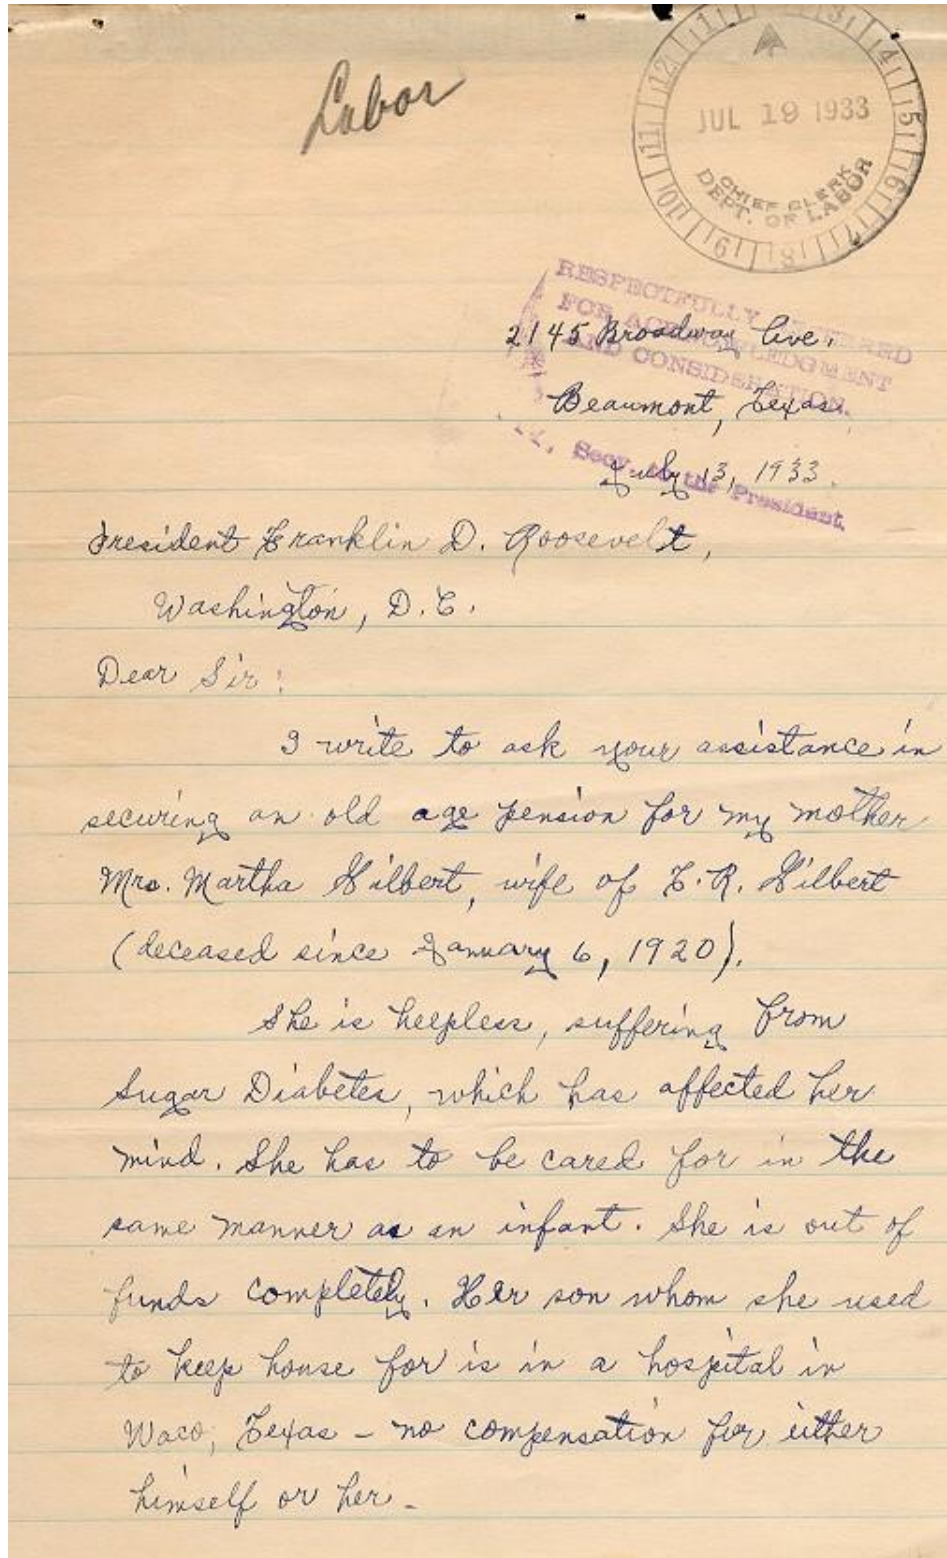 Labor
12 11 10 9 8 7 6 5 4 3 1
JUL 19 1933
CHIEF CLERK
DEPT. OF LABOR
RESPECTFULLY
FOR ACKNOWLEDGMENT
AND CONSIDERATION.
Secy. to the President.
2145 Broadway Ave.
Beaumont, Texas.
July 13, 1933.
President Franklin D. Roosevelt,
Washington, D.C.
Dear Sir:
I write to ask your assistance in
securing an old age pension for my mother
Mrs. Martha Gilbert, wife of F. R. Gilbert
(deceased since January 6, 1920).
She is helpless, suffering from
Sugar Diabetes, which has affected her
mind. She has to be cared for in the
same manner as an infant. She is out of
funds completely. Her son whom she used
to keep house for is in a hospital in
Waco, Texas – no compensation for either
himself or her –